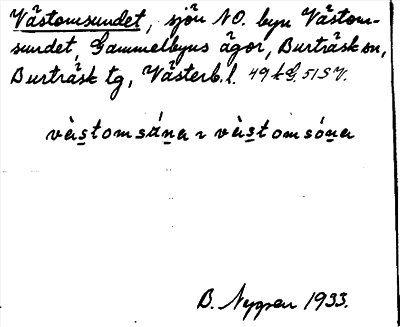 Västomsundet, sjön NO. byn Västom-
sundet, Gammelbyns ägor, Burträsk sn,
Burträsk tg, Västerb. l. 49 k G. 51 SV.
våstomsána ~ våstomsóna
B. Nygren 1933.